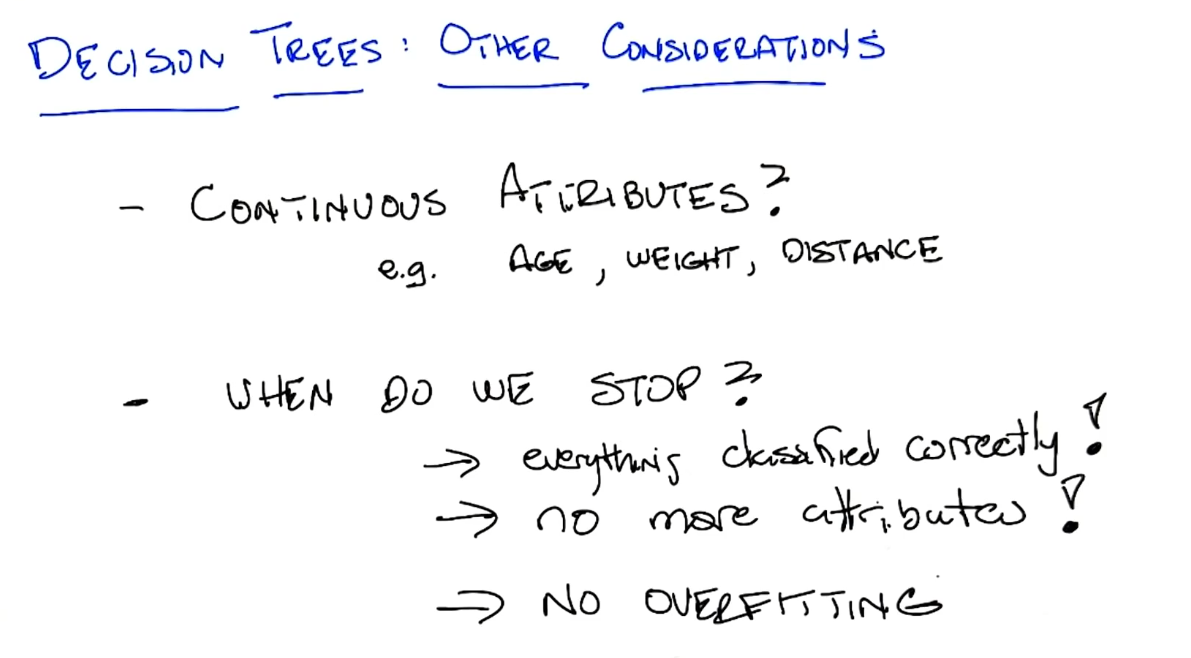 DECISION TREES: OTHER CONSIDERATIONS
- CONTINUOUS ATTRIBUTES?
e.g. AGE, WEIGHT, DISTANCE
- WHEN DO WE STOP?
→ everything classified correctly!
→ no more attributes!
→ NO OVERFITTING